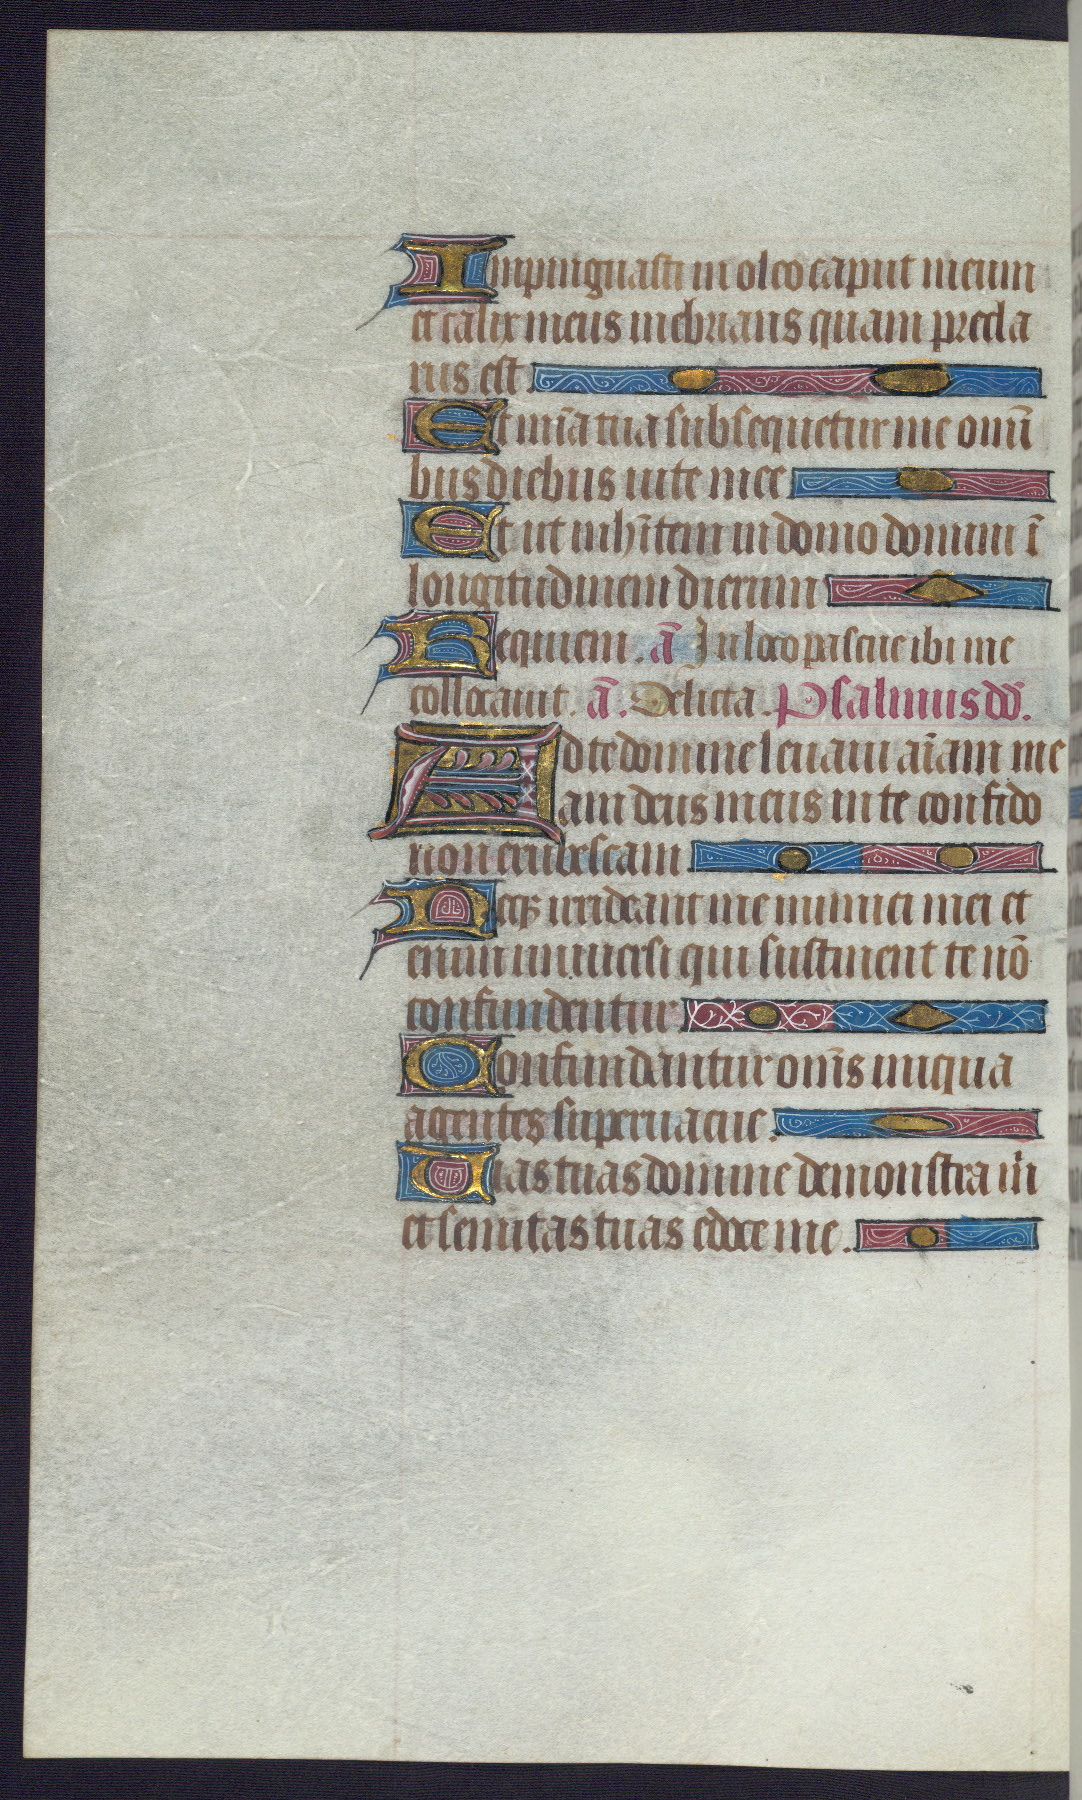 Impinguasti in oleo caput meum
et calix meus inebrians quam precla
rus est
Et mīa tua subsequetur me omī
bus diebus uite mee
Et ut inhītem in domo domini ī
longitudinem dierum
Requiem. ā In loco pascue ibi me
collocauit. ā. Delicta. Psalmus dd̄.
Ad te domine leuaui aīam me
am deus meus in te confido
non erubescam
Neqꝫ irrideant me inimici mei et
enim uniuersi qui sustinent te nō
confundentur
Confundantur om̄s iniqua
agentes superuacue.
Uias tuas domine demonstra m̄
et semitas tuas edoce me.